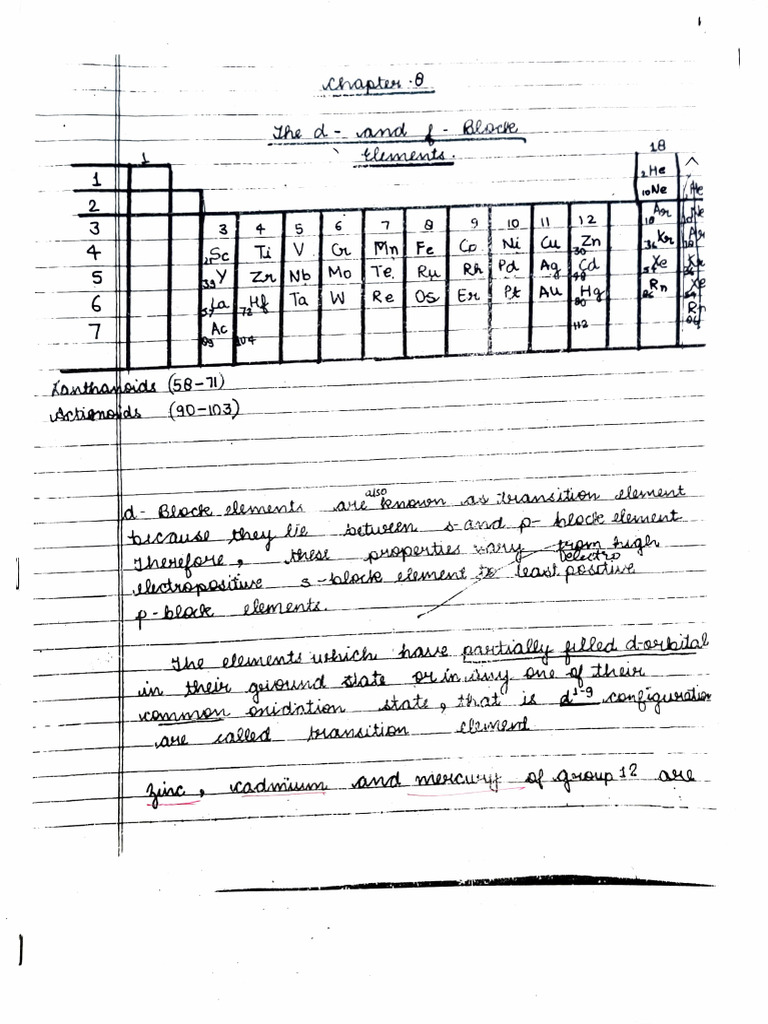 Chapter-8
The d- and f- Block
Elements.
1 18
1 2He
2 10Ne
3 3 4 5 6 7 8 9 10 11 12 18Ar
4 21Sc Ti V Cr Mn Fe Co Ni Cu Zn 30 36Kr
5 39Y Zr Nb Mo Te. Ru Rh Pd Ag Cd 48 54Xe
6 57La Hf 72 Ta W Re Os Er Pt Au Hg 80 Rn 86
7 Ac 89 104 112
He
Ne
Ar
Kr
Xe
Rn
Lanthanoids (58-71)
Actionoids (90-103)
also
d- Block elements are known as transition element
because they lie between s-and p- block element
Therefore, these properties vary from high
electro
electropositive s-block element to least positive
p-block elements.
The elements which have partially filled d-orbital
in their ground state or in any one of their
common oxidation state, that is d1-9 configuration
are called transition element
Zinc, cadmium and mercury of group 12 are